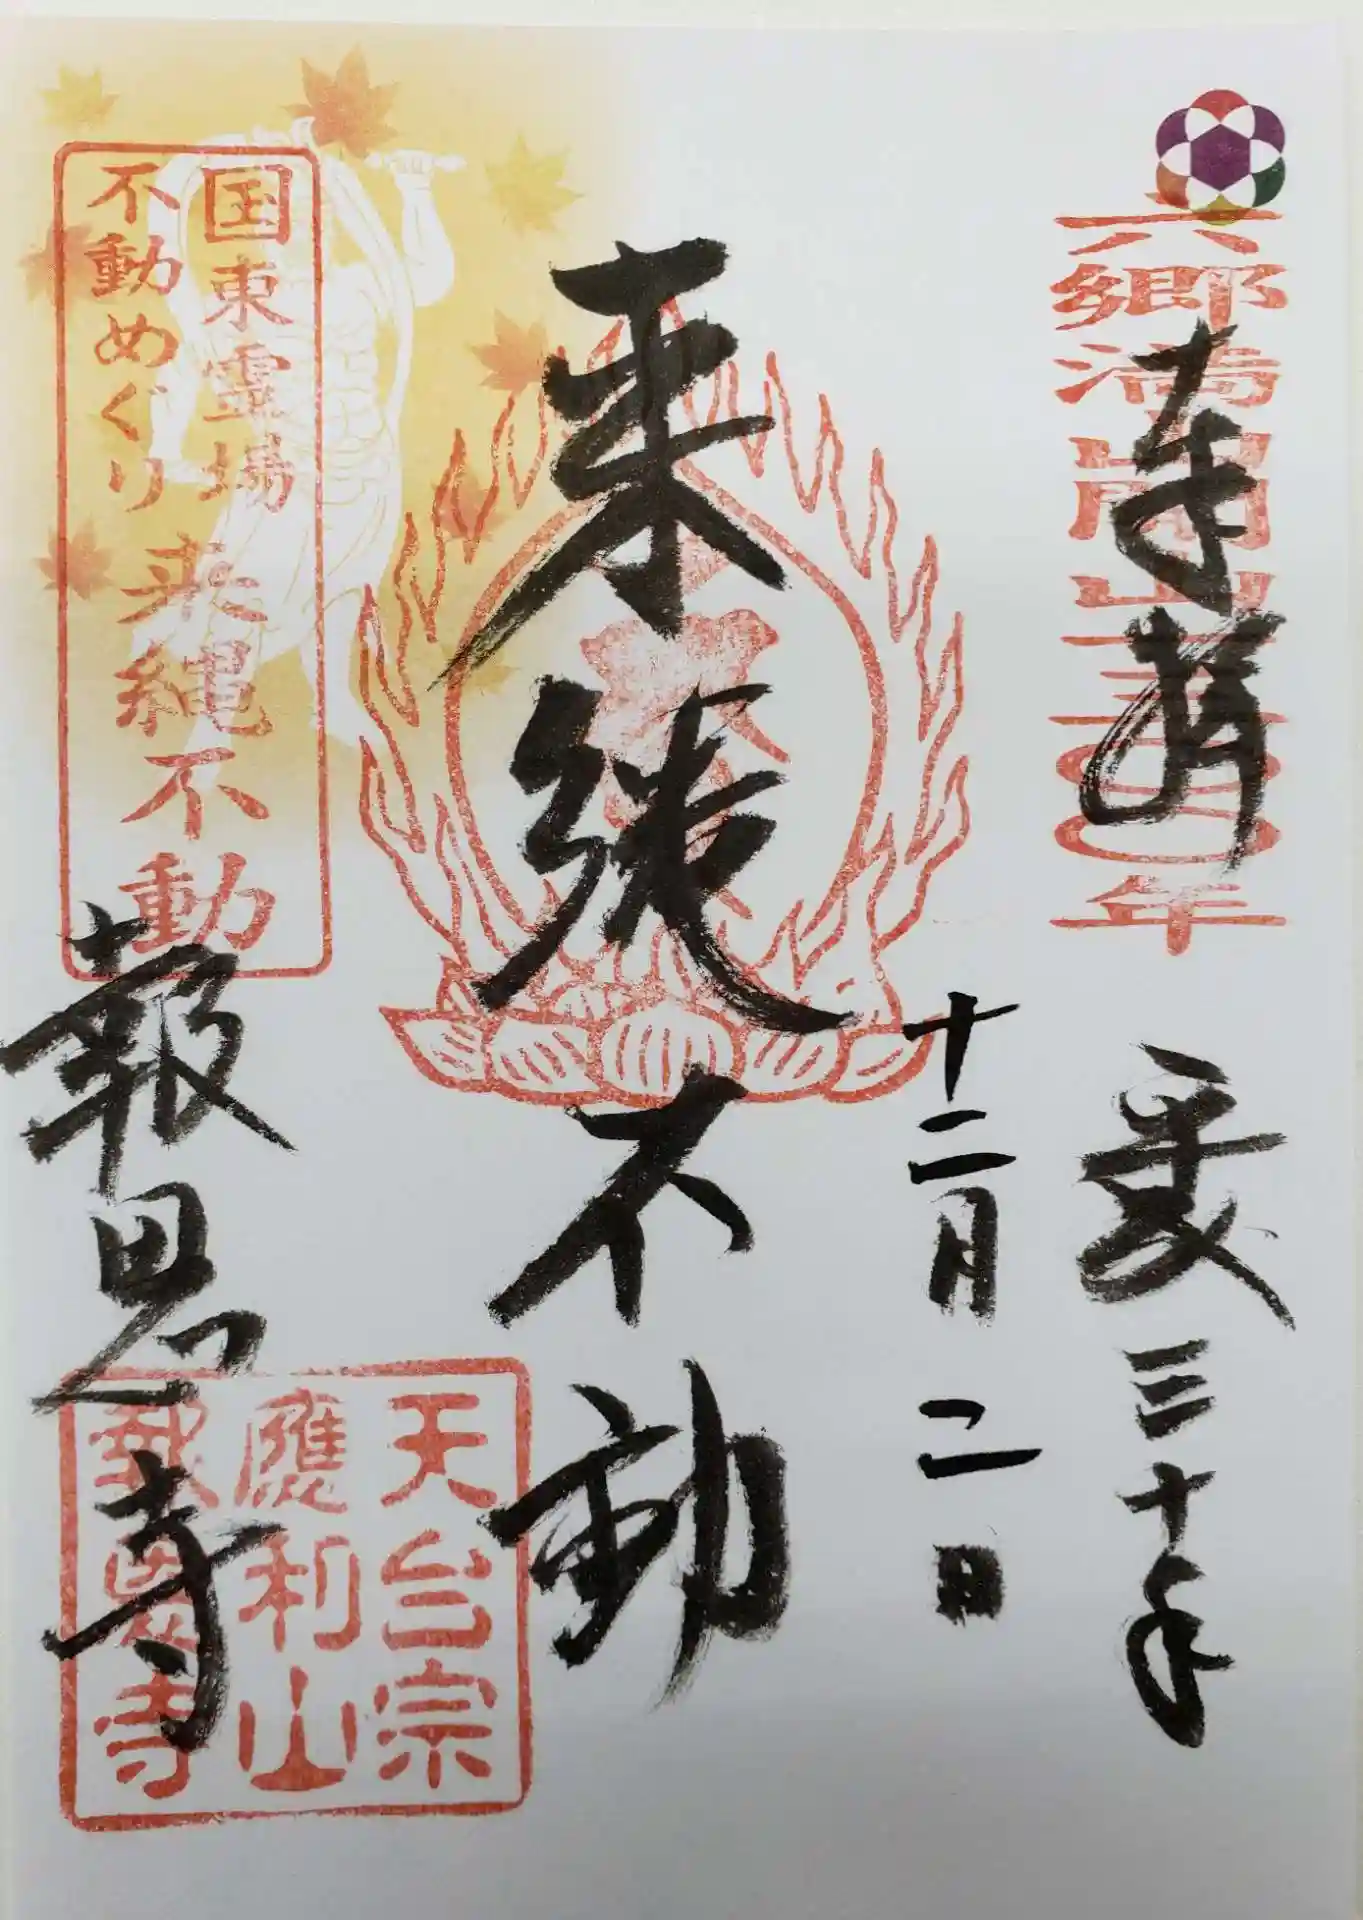 六郷満山開山一三〇〇年
奉拝
平成三十年
十二月二日
来縄不動
国東霊場
不動めぐり
来縄不動
報恩寺
天台宗
應利山
報恩寺